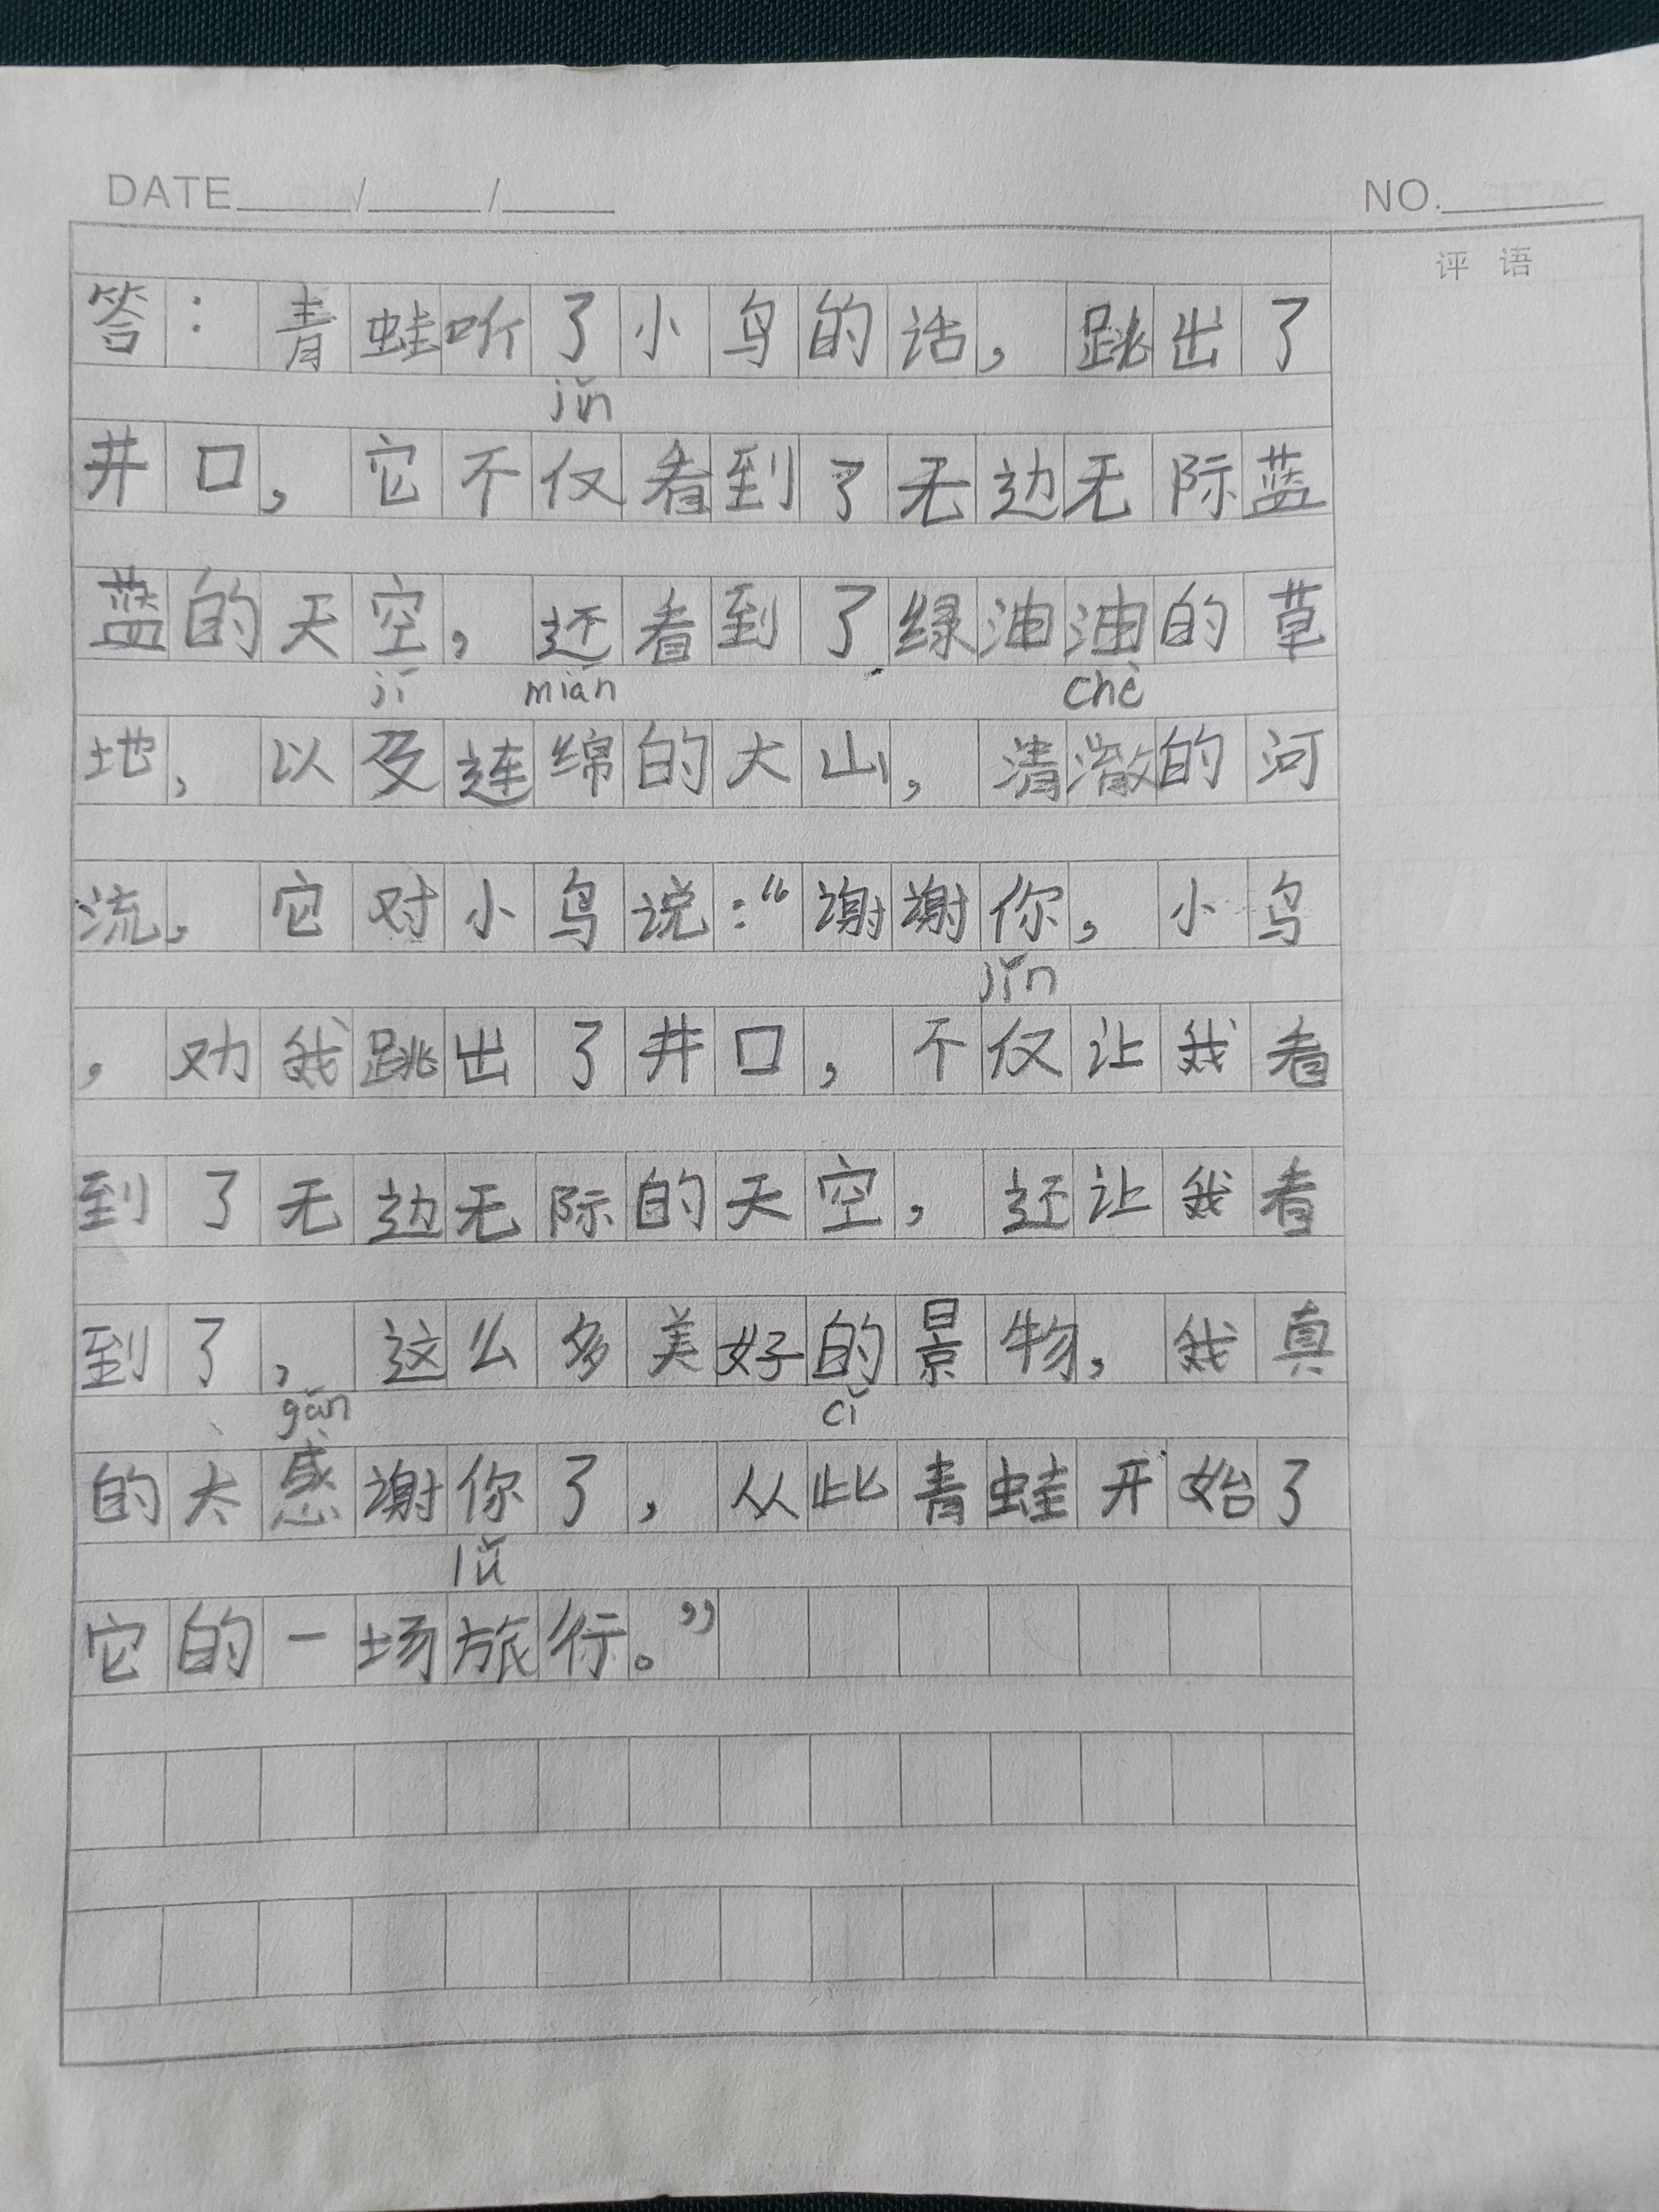 DATE____/____/____ NO.____
评语
答：青蛙听了小鸟的话，跳出了
jǐn
井口，它不仅看到了无边无际蓝
蓝的天空，还看到了绿油油的草
jí mián chè
地，以及连绵的大山，清澈的河
流，它对小鸟说：“谢谢你，小鸟
jǐn
，劝我跳出了井口，不仅让我看
到了无边无际的天空，还让我看
到了，这么多美好的景物，我真
gǎn cǐ
的太感谢你了，从此青蛙开始了
lǚ
它的一场旅行。”